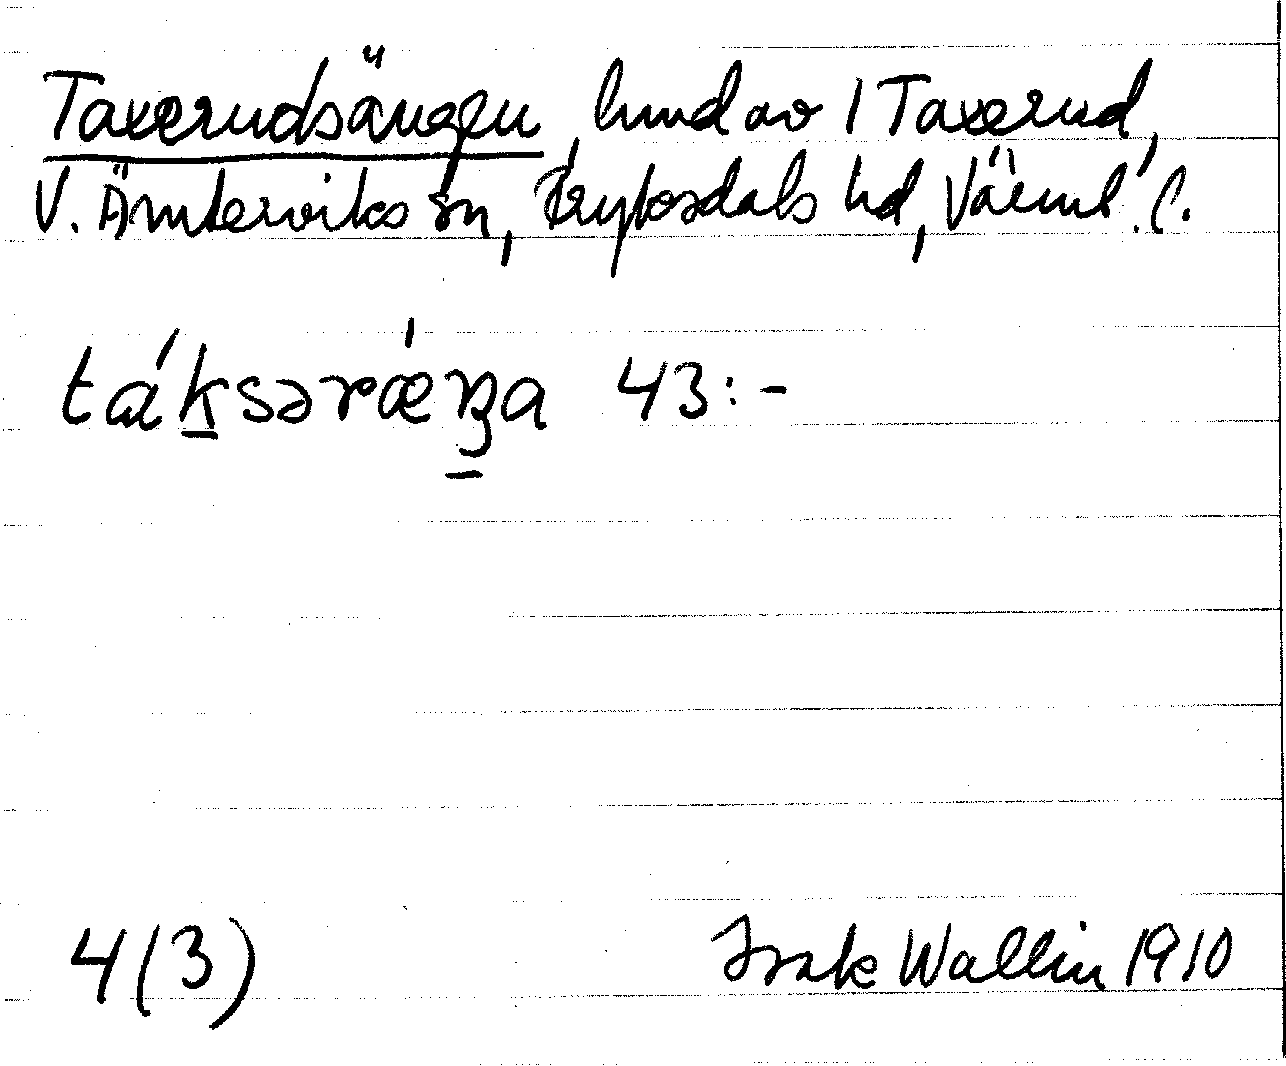 Taxerudsängen, lund av 1 Taxerud,
V. Ämterviks sn, Fryksdals hd, Värml. l.
táksərǽŋa 43:-
4(3)
Isak Wallin 1910